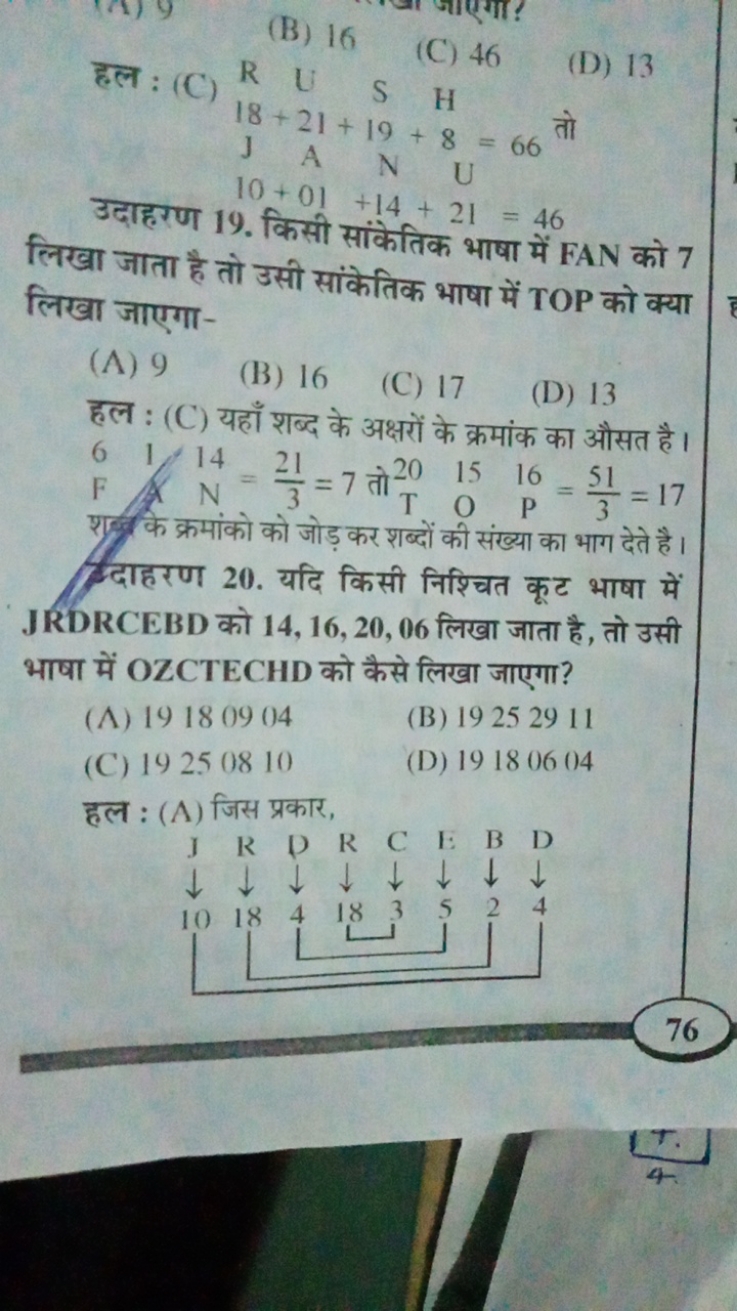 (A) 9
जाएगा?
(B) 16 (C) 46 (D) 13
हल : (C) R U S H
18 + 21 + 19 + 8 = 66 तो
J A N U
10 + 01 +14 + 21 = 46
उदाहरण 19. किसी सांकेतिक भाषा में FAN को 7
लिखा जाता है तो उसी सांकेतिक भाषा में TOP को क्या
लिखा जाएगा-
(A) 9 (B) 16 (C) 17 (D) 13
हल : (C) यहाँ शब्द के अक्षरों के क्रमांक का औसत है।
6 1 14 = 21/3 = 7 तो 20 15 16 = 51/3 = 17
F A N T O P
शब्द के क्रमांको को जोड़ कर शब्दों की संख्या का भाग देते है।
उदाहरण 20. यदि किसी निश्चित कूट भाषा में
JRDRCEBD को 14, 16, 20, 06 लिखा जाता है, तो उसी
भाषा में OZCTECHD को कैसे लिखा जाएगा?
(A) 19 18 09 04 (B) 19 25 29 11
(C) 19 25 08 10 (D) 19 18 06 04
हल : (A) जिस प्रकार,
J R D R C E B D
↓ ↓ ↓ ↓ ↓ ↓ ↓ ↓
10 18 4 18 3 5 2 4
76
4.